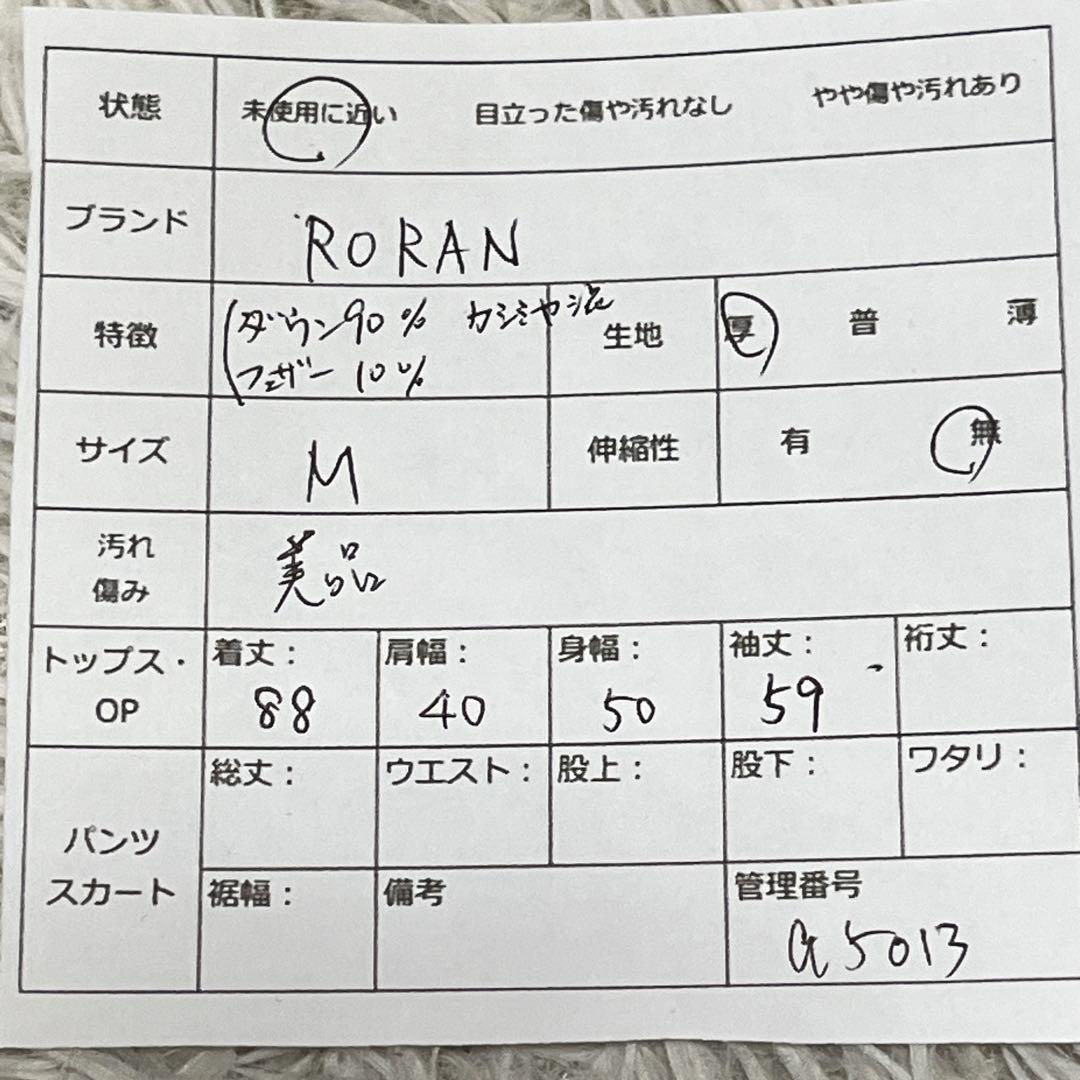 状態 未使用に近い 目立った傷や汚れなし やや傷や汚れあり
ブランド RORAN
特徴 ダウン90% カシミヤ混 生地 厚 普 薄
フェザー 10%
サイズ M 伸縮性 有 無
汚れ
傷み 美品
トップス・ 着丈： 肩幅： 身幅： 袖丈： 裄丈：
OP 88 40 50 59
総丈： ウエスト： 股上： 股下： ワタリ：
パンツ
スカート 裾幅： 備考 管理番号
a5013